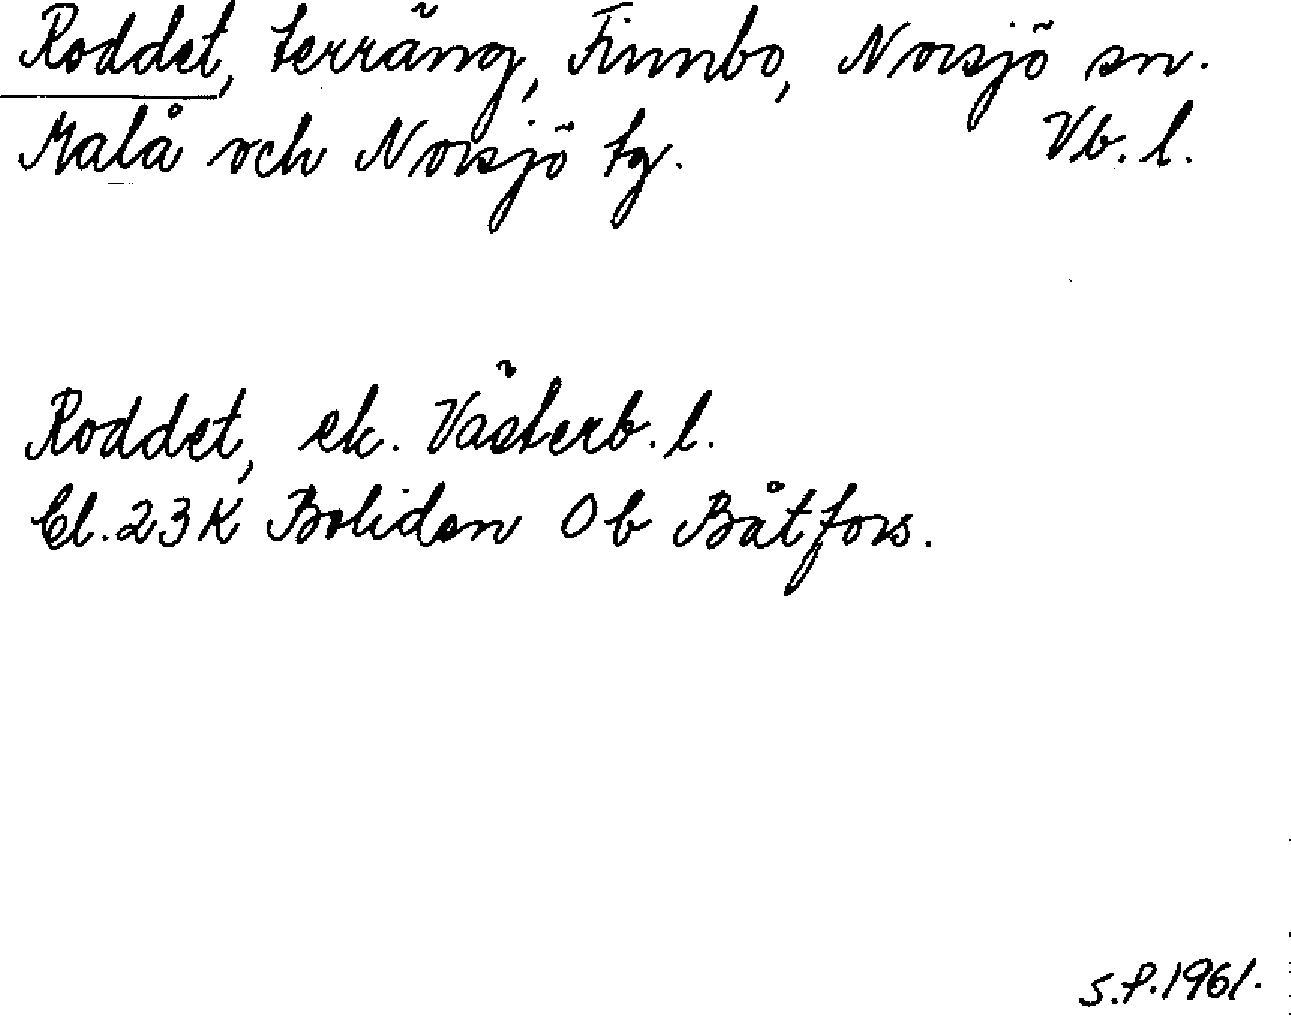 Roddet, terräng, Finnbo, Norsjö sn.
Malå och Norsjö tg. Vb. l.
Roddet, ek. Västerb. l.
Bl. 23K Boliden 0b Båtfors.
S.P. 1961.